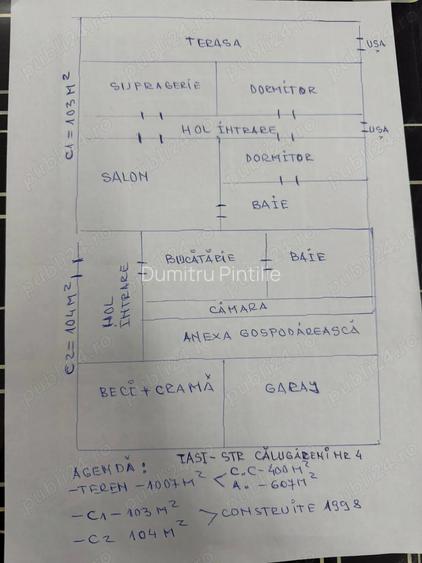 TERASA
UȘA
SUFRAGERIE
DORMITOR
C1 = 103 M²
HOL ÎNTRARE
UȘA
DORMITOR
SALON
BAIE
BUCĂTĂRIE
BAIE
Dumitru Pintilie
HOL ÎNTRARE
CĂMARA
C2 = 104 M²
ANEXA GOSPODĂREASCĂ
BECI + CRAMĂ
GARAJ
IAȘI - STR CĂLUGĂRENI NR 4
AGENDĂ:
- TEREN - 1007 M² < C.C - 400 M²
A. - 607 M²
- C1 - 103 M²
> CONSTRUITE 1998
- C2 104 M²
publi24.ro